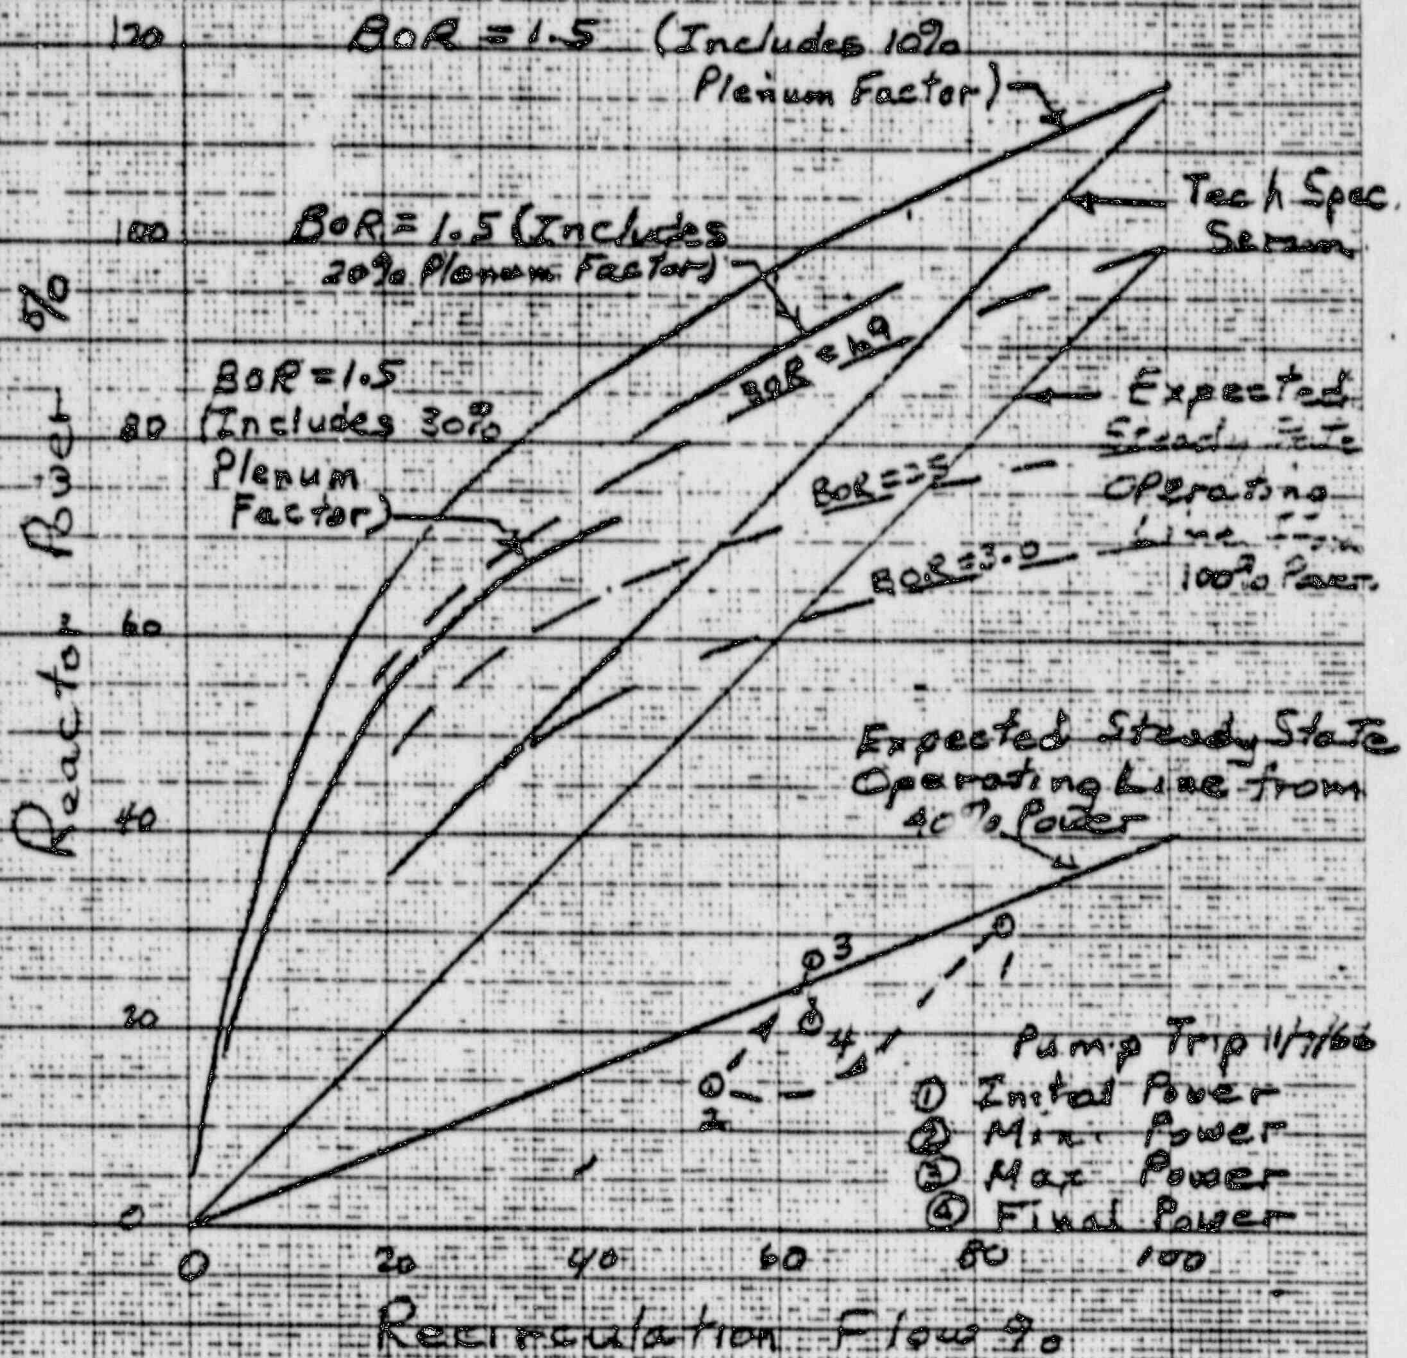 120
BOR = 1.5 (Includes 10%
Plenum Factor)
Tech Spec.
100
BOR = 1.5 (Includes
20% Plenum Factor)
BOR = 1.9
BOR = 1.5
(Includes 30%
Plenum
Factor)
80
Expected
Steady State
Operating
Line
100% Power.
BOR =
BOR = 3.0
60
Expected Steady State
Operating Line from
40% Power
40
20
0
3
1
4
2
Pump Trip 11/7/66
① Initial Power
② Min. Power
③ Max Power
④ Final Power
0 20 40 60 80 100
Recirculation Flow %
Reactor Power %